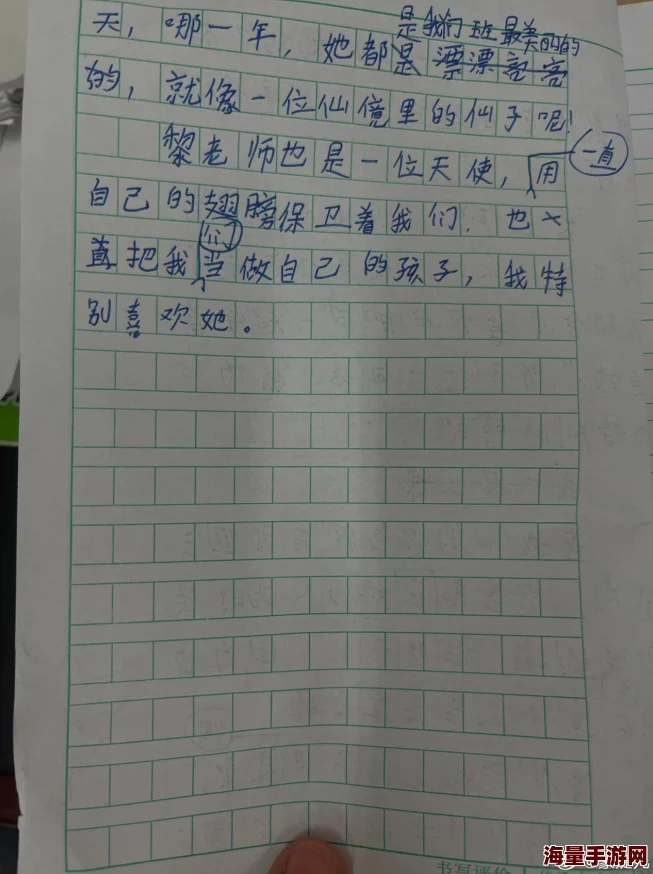 是我们班最美的的
天，哪一年，她都是漂漂亮亮
的，就像一位仙境里的仙子呢！
黎老师也是一位天使，用
一直
自己的翅膀保卫着我们．也一
们
直把我当做自己的孩子，我特
别喜欢她。
书写评价
海量手游网